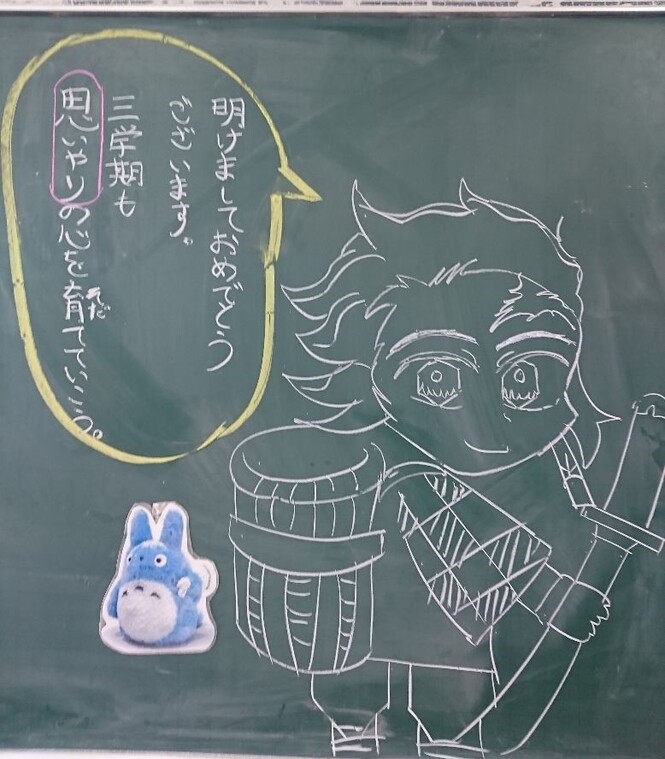 明けましておめでとう
ございます。
三学期も
思いやりの心を育てていこう。
そだ